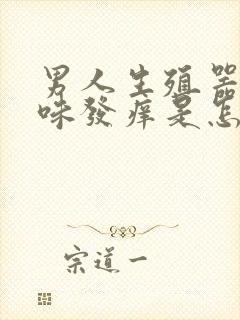 男人生殖器
味發痒是怎
宗道一